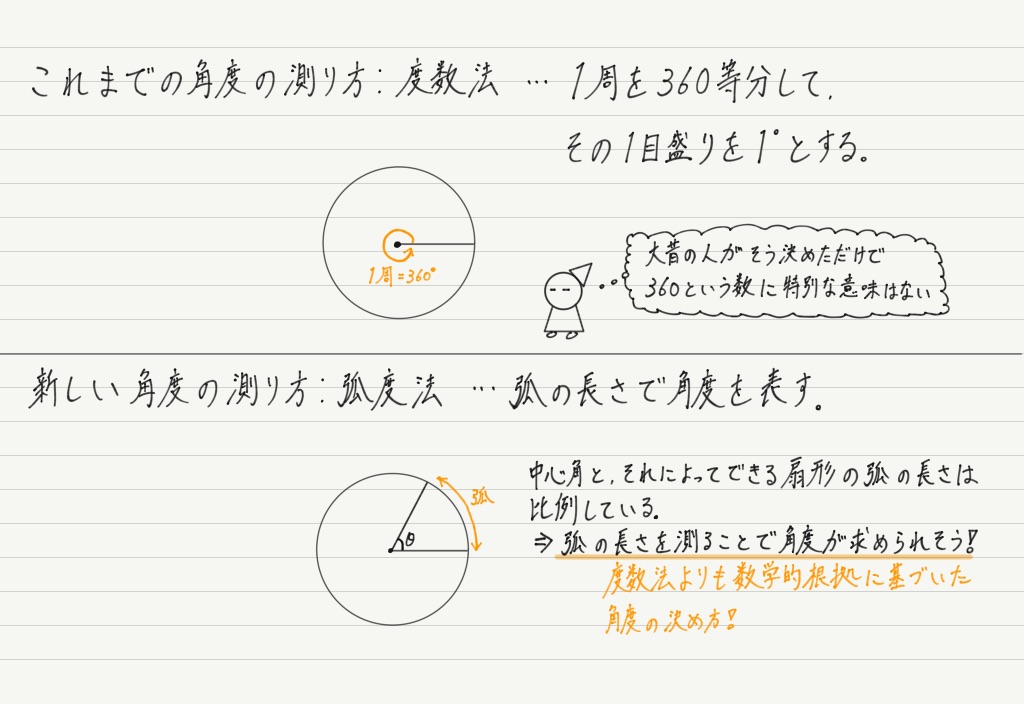 これまでの角度の測り方：度数法 … 1周を360等分して，
その1目盛りを1°とする。
1周=360°
大昔の人がそう決めただけで
360という数に特別な意味はない
新しい角度の測り方：弧度法 … 弧の長さで角度を表す。
中心角と，それによってできる扇形の弧の長さは
比例している。
⇒ 弧の長さを測ることで角度が求められそう！
度数法よりも数学的根拠に基づいた
角度の決め方！
弧
θ